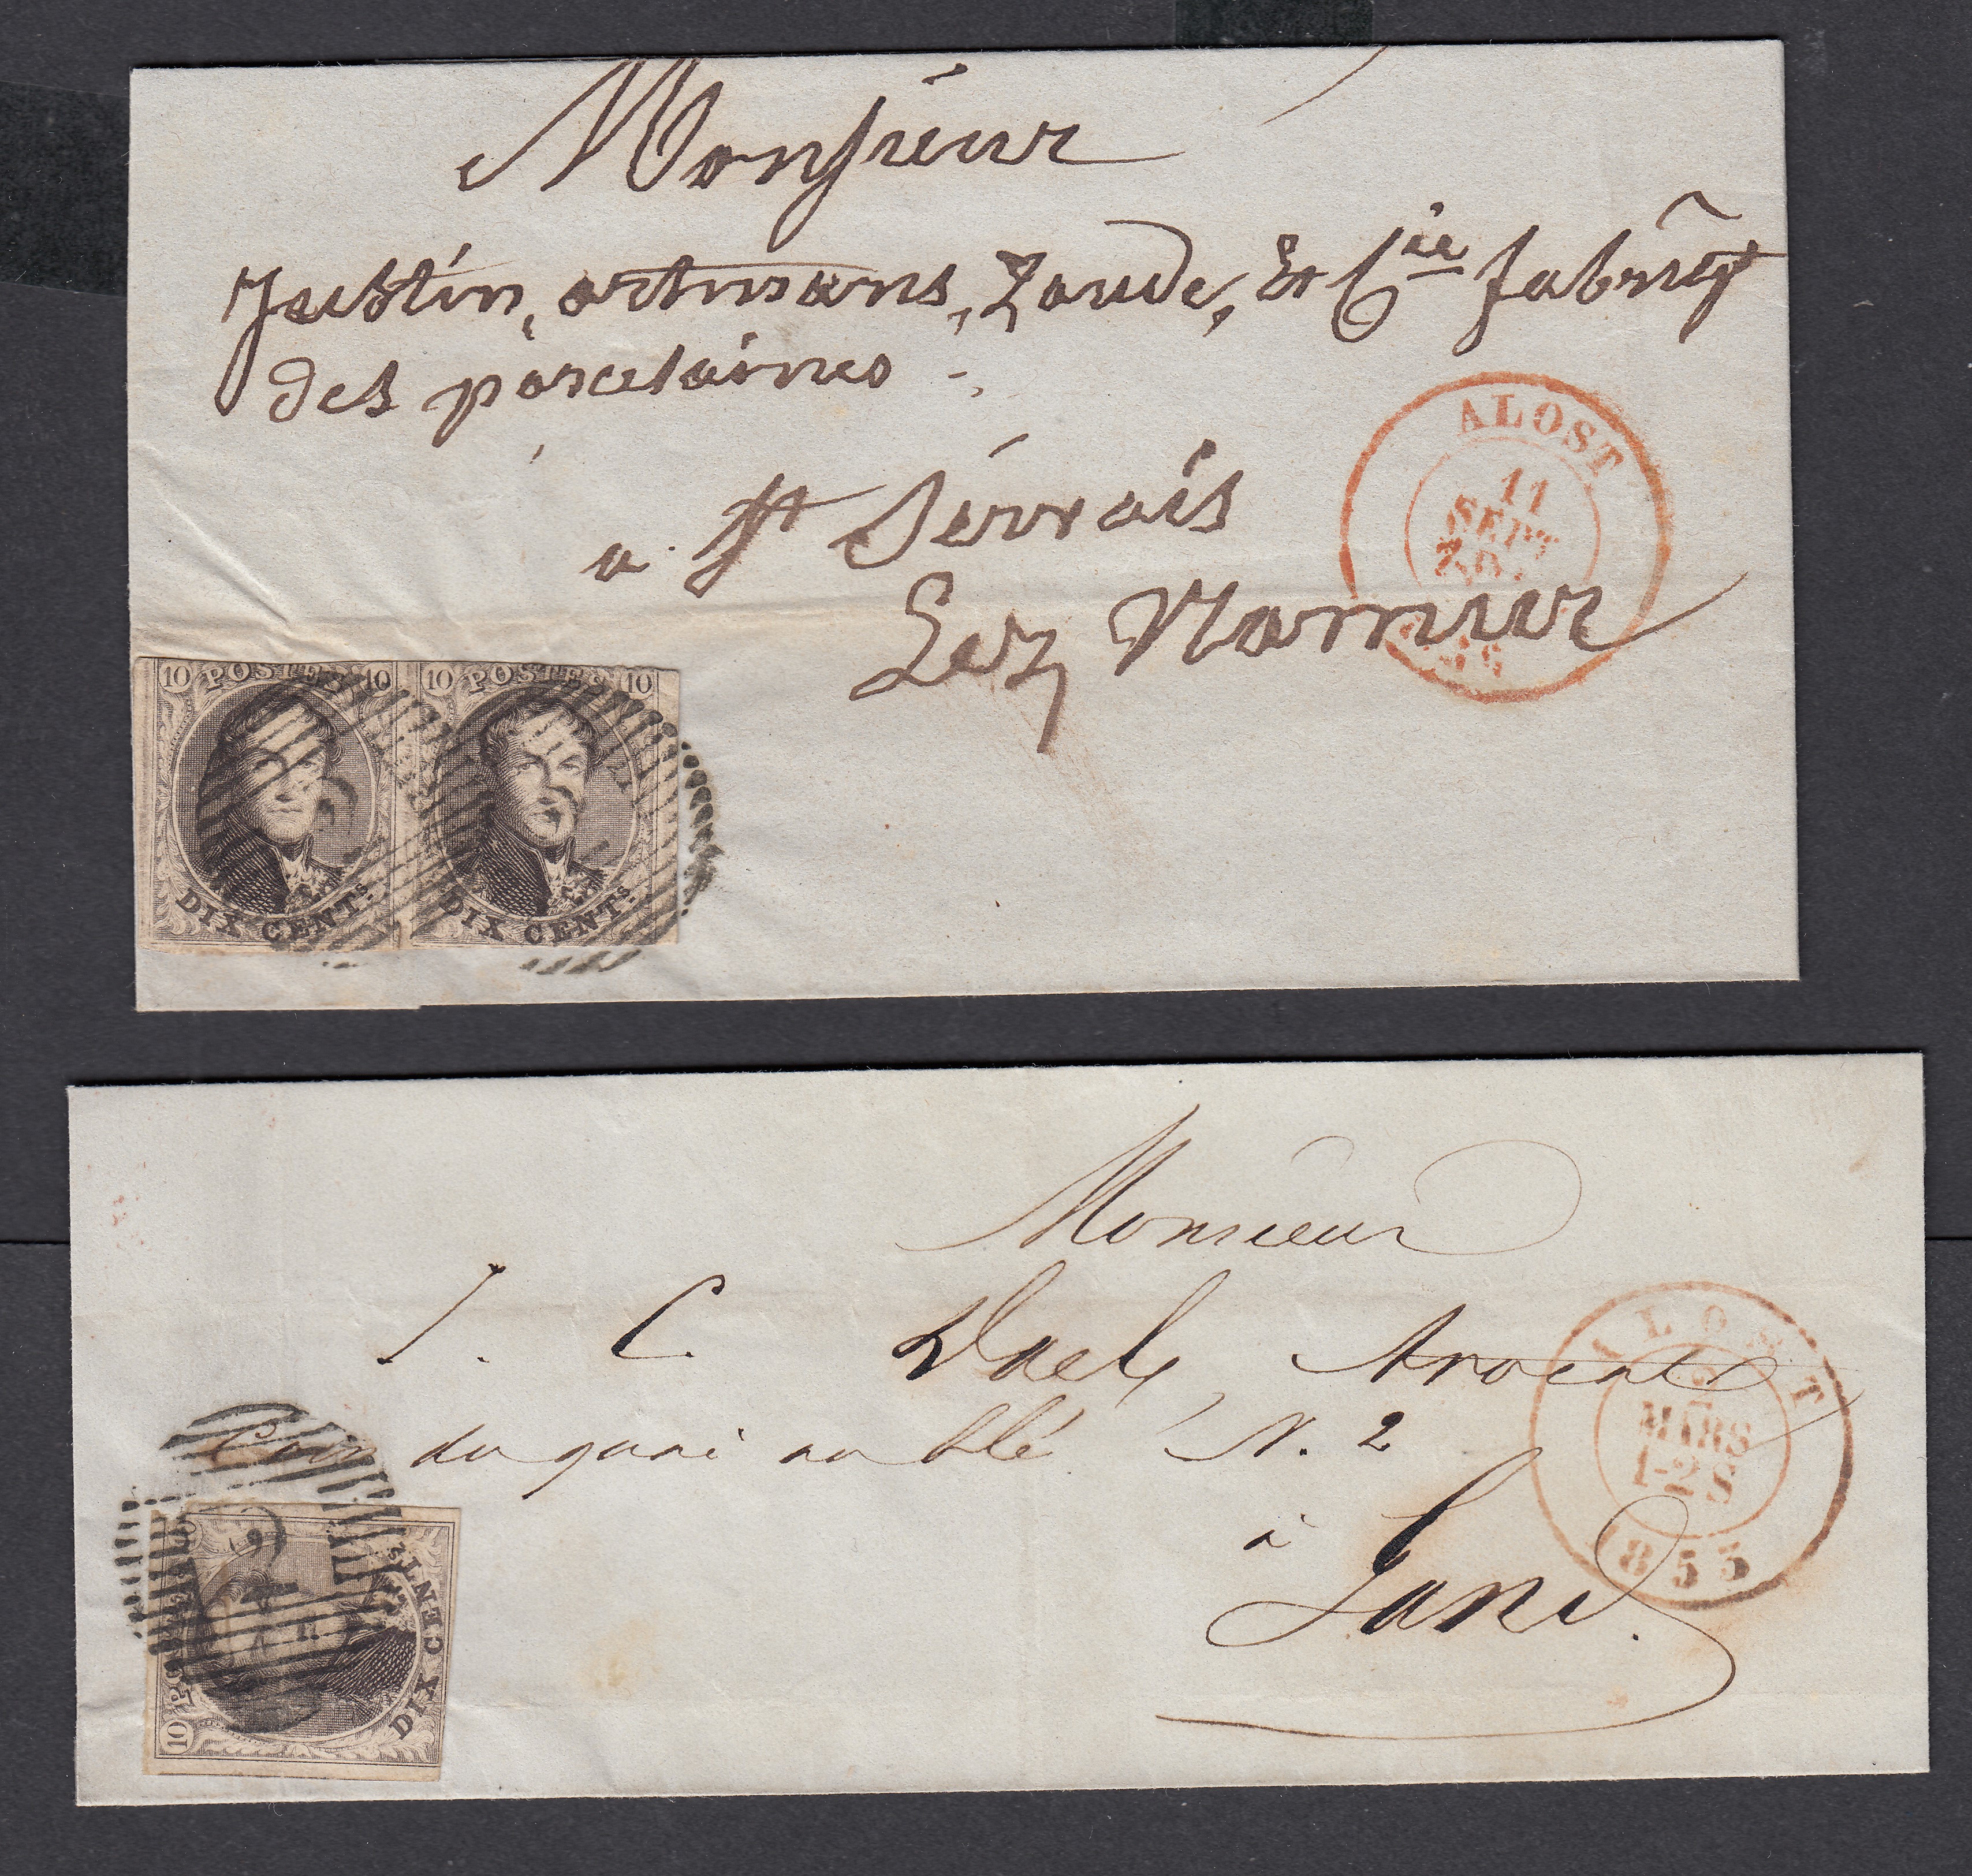 Monsieur
Justin, ortmans, Zoude, et Cie fabriqt
des porcelaines
a St Servais
Lez Namur
ALOST
11
SEPT
10 POSTES 10
DIX CENTS
10 POSTES 10
DIX CENTS
Monsieur
J. C. Dael, Avocat
Coin du quai au blé N. 2
à Gand
ALOST
MARS
1-2 S
1853
10 POSTES 10
DIX CENTS